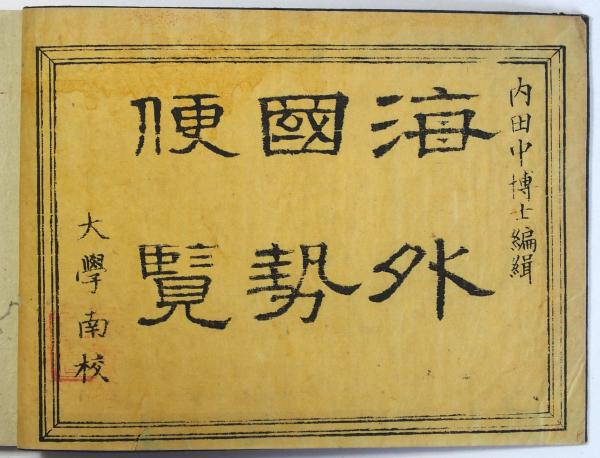 内田中博士編緝
海外
國勢
便覧
大學南校